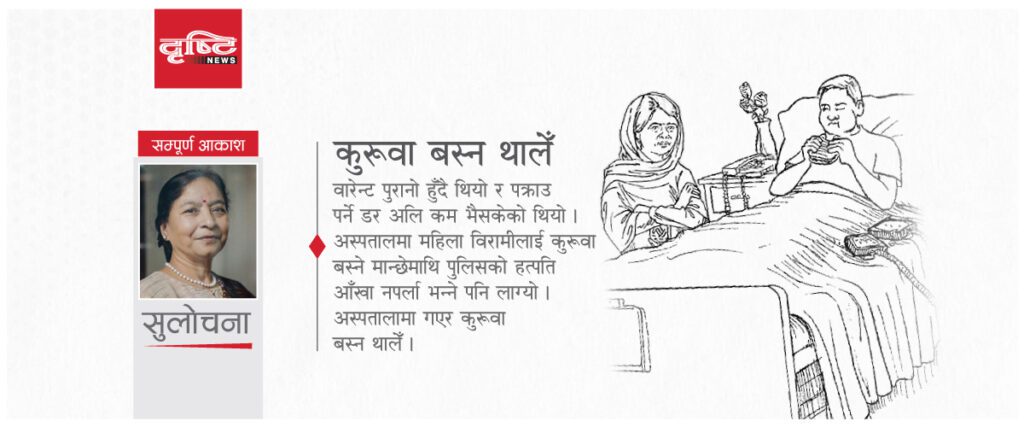 दृष्टि
NEWS
सम्पूर्ण आकाश
सुलोचना
कुरूवा बस्न थालेँ
वारेन्ट पुरानो हुँदै थियो र पक्राउ
पर्ने डर अलि कम भैसकेको थियो ।
अस्पतालमा महिला विरामीलाई कुरूवा
बस्ने मान्छेमाथि पुलिसको हत्पति
आँखा नपर्ला भन्ने पनि लाग्यो ।
अस्पतालामा गएर कुरूवा
बस्न थालेँ ।